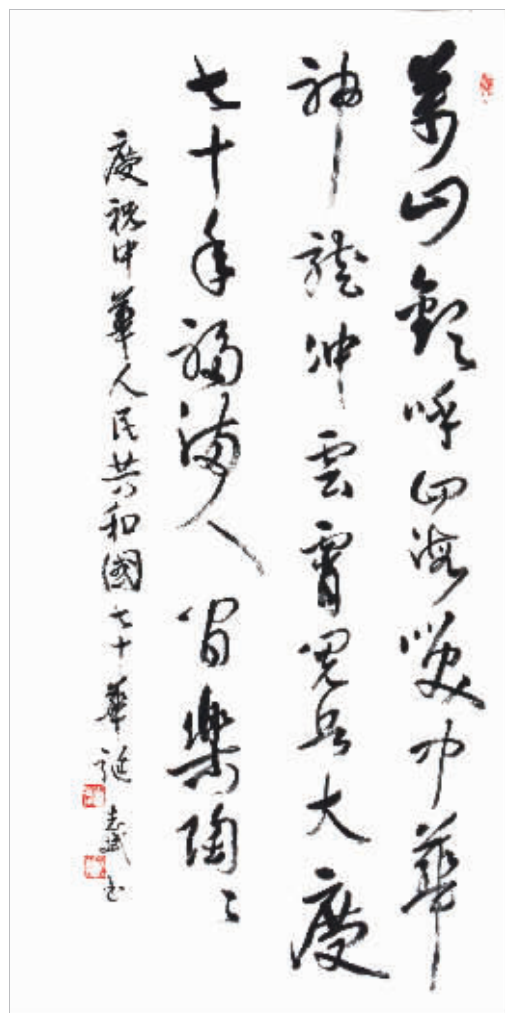 萬山歡呼四海笑中華
神龍沖雲霄閱兵大慶
七十年福滿人间樂陶〻
慶祝中華人民共和國七十華誕 志斌书